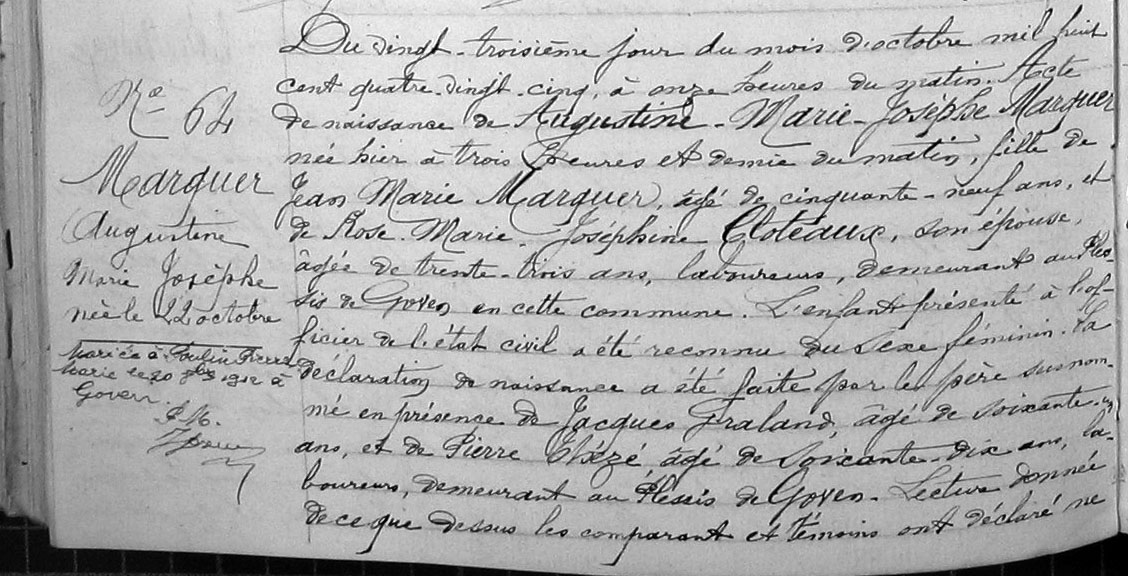 No 64
Marquer
Augustine
Marie Josèphe
née le 22 octobre
Mariée à Poulin Pierre
Marie le 20 9bre 1912 à
Goven.
Du vingt-troisième jour du mois d'octobre mil huit
cent quatre-vingt-cinq, à onze heures du matin. Acte
de naissance de Augustine-Marie-Josèphe Marquer
née hier à trois heures et demie du matin, fille de
Jean Marie Marquer, âgé de cinquante-neuf ans, et
de Rose-Marie-Joséphine Cloteaux, son épouse,
âgée de trente-trois ans, laboureurs, demeurant au Ples-
sis de Goven en cette commune. L'enfant présenté à l'of-
ficier de l'état civil a été reconnu du sexe féminin. La
déclaration de naissance a été faite par le père susnom-
mé en présence de Jacques Fraland, âgé de soixante-un
ans, et de Pierre Thézé, âgé de soixante-dix ans, la-
boureurs, demeurant au Plessis de Goven. Lecture donnée
de ce que dessus les comparant et témoins ont déclaré ne